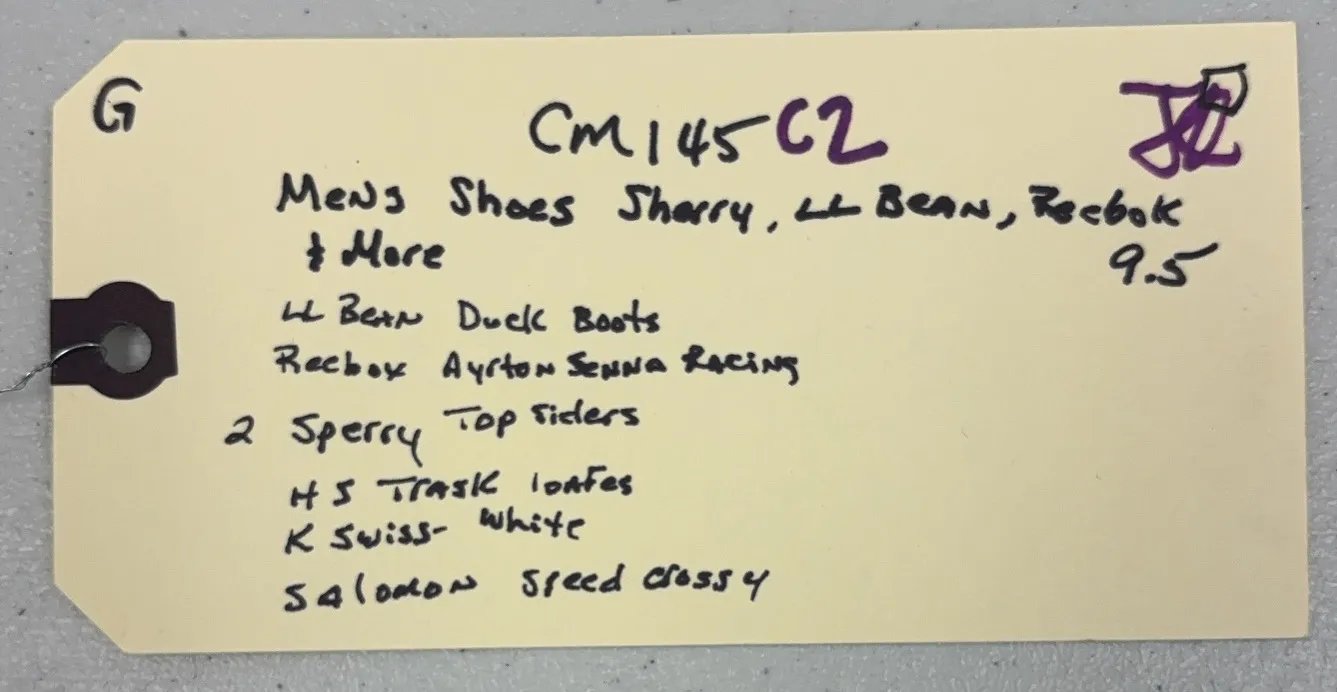 G
CM145 C2
Mens Shoes Sherry, LL Bean, Reebok
& More
9.5
LL Bean Duck Boots
Reebox Ayrton Senna Racing
2 Sperry Top Siders
H S Trask loafes
K Swiss- White
Salomon Speed Cross 4